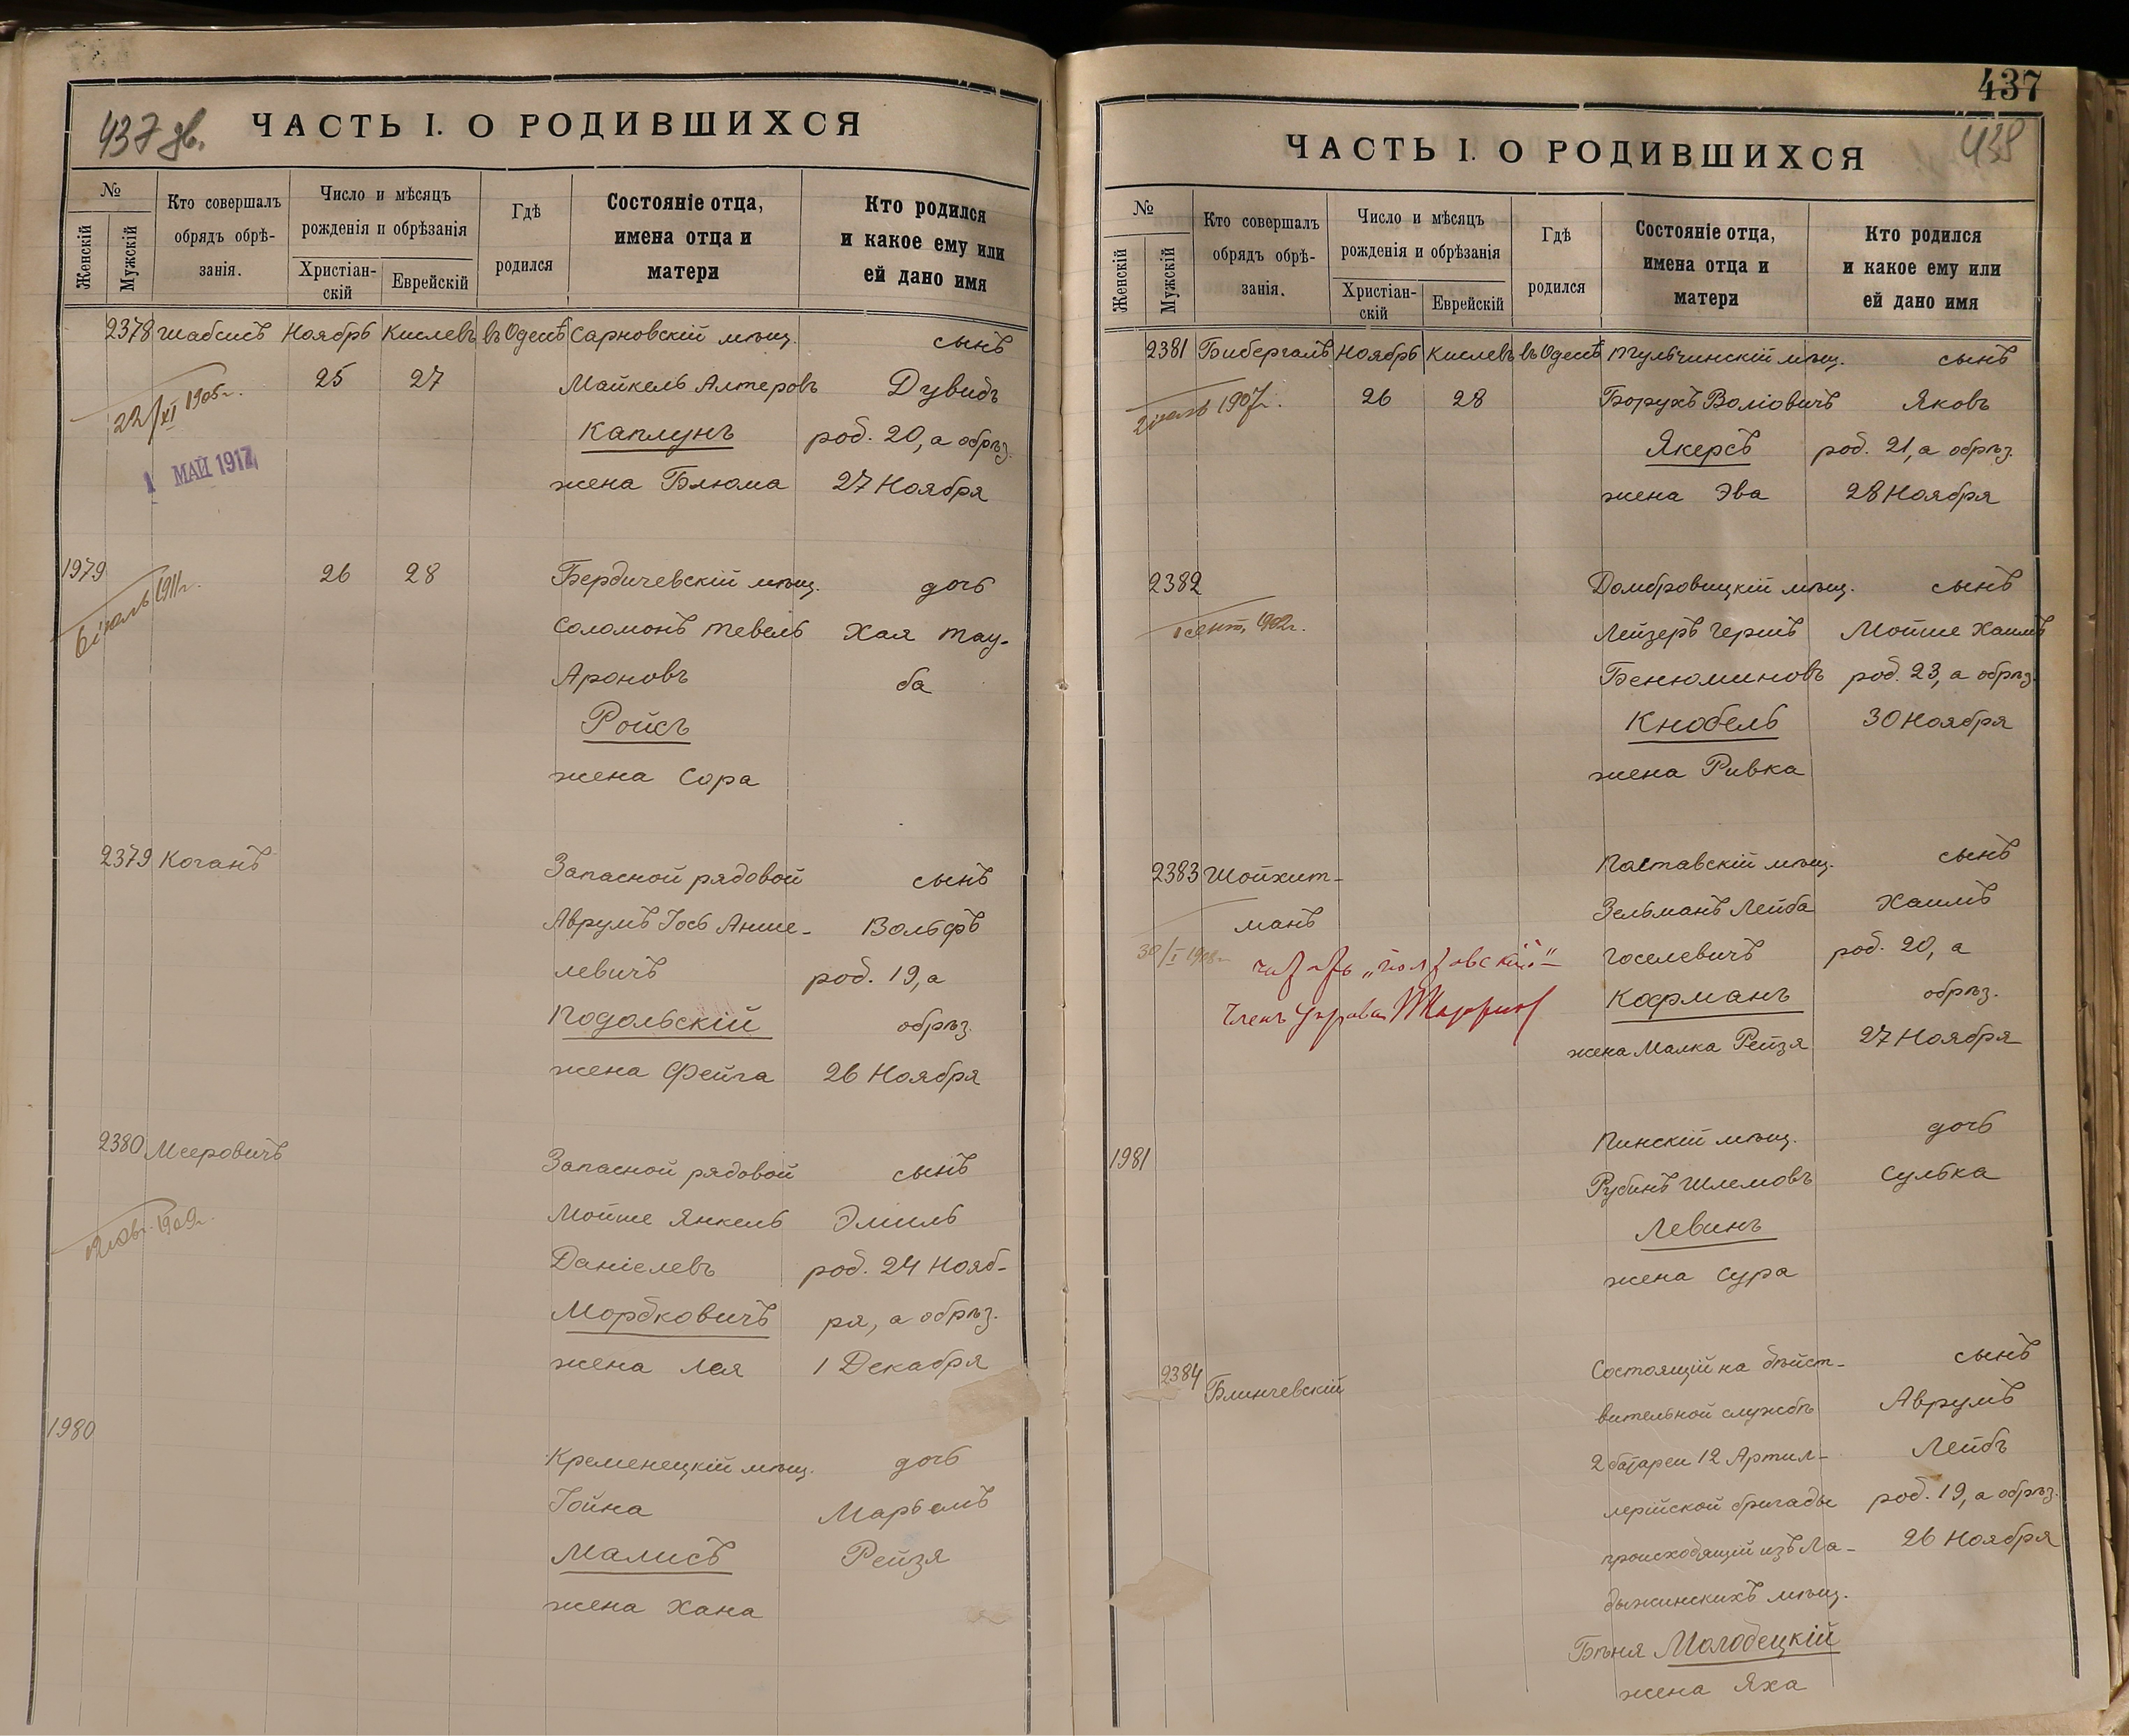 437 дв.
ЧАСТЬ I. О РОДИВШИХСЯ
№
Женскій
Мужскій
Кто совершалъ
обрядъ обрѣ-
занія.
Число и мѣсяцъ
рожденія и обрѣзанія
Христіан-
скій
Еврейскій
Гдѣ
родился
Состояніе отца,
имена отца и
матери
Кто родился
и какое ему или
ей дано имя
2378 Шабсисъ Ноябрь Кислевъ въ Одессѣ Сарновскій мѣщ. сынъ
22/XI 1905 г. 25 27 Майкель Алтеровъ Дувидъ
1 МАЙ 1917
Каплунъ род. 20, а обрѣз.
жена Блюма 27 Ноября
1979 26 28 Бердичевскій мѣщ. дочь
6 іюль 1911 г.
Соломонъ Тевель Хая Тау-
Ароновъ ба
Ройсъ
жена Сора
2379 Коганъ Запасной рядовой сынъ
Аврумъ Іось Анше- Вольфъ
левичъ род. 19, а
Подольскій обрѣз.
жена Фейга 26 Ноября
2380 Мееровичъ Запасной рядовой сынъ
1909 г. Мойше Янкель Эмиль
Даніелевъ род. 24 Нояб-
Мордковичъ ря, а обрѣз.
жена Лея 1 Декабря
1980 Кременецкій мѣщ. дочь
Іойна Марьемъ
Малисъ Рейзя
жена Хана
437
438
ЧАСТЬ I. О РОДИВШИХСЯ
№
Женскій
Мужскій
Кто совершалъ
обрядъ обрѣ-
занія.
Число и мѣсяцъ
рожденія и обрѣзанія
Христіан-
скій
Еврейскій
Гдѣ
родился
Состояніе отца,
имена отца и
матери
Кто родился
и какое ему или
ей дано имя
2381 Бибергалъ Ноябрь Кислевъ въ Одессѣ Тульчинскій мѣщ. сынъ
1907 г. 26 28 Борухъ Воліовичъ Яковъ
Якерсъ род. 21, а обрѣз.
жена Эва 28 Ноября
2382 Домбровицкій мѣщ. сынъ
1 сент. 1902 г. Лейзеръ Гершъ Мойше Хаимъ
Бенюминовъ род. 23, а обрѣз.
Кнобель 30 Ноября
жена Ривка
2383 Шойхит- Полтавскій мѣщ. сынъ
манъ Зельманъ Лейба Хаимъ
30/I 1908 г. читать „полтавскій" Іоселевичъ род. 20, а
Членъ Управы Кофманъ обрѣз.
жена Малка Рейзя 27 Ноября
1981 Пинскій мѣщ. дочь
Рубинъ Шлемовъ Сулька
Левинъ
жена Сура
2384 Блинчевскій Состоящій на дѣйст- сынъ
вительной службѣ Аврумъ
2 батареи 12 Артил- Лейбъ
лерійской бригады род. 19, а обрѣз.
происходящій изъ Ла- 26 Ноября
дыжинскихъ мѣщ.
Бѣня Молодецкій
жена Яха